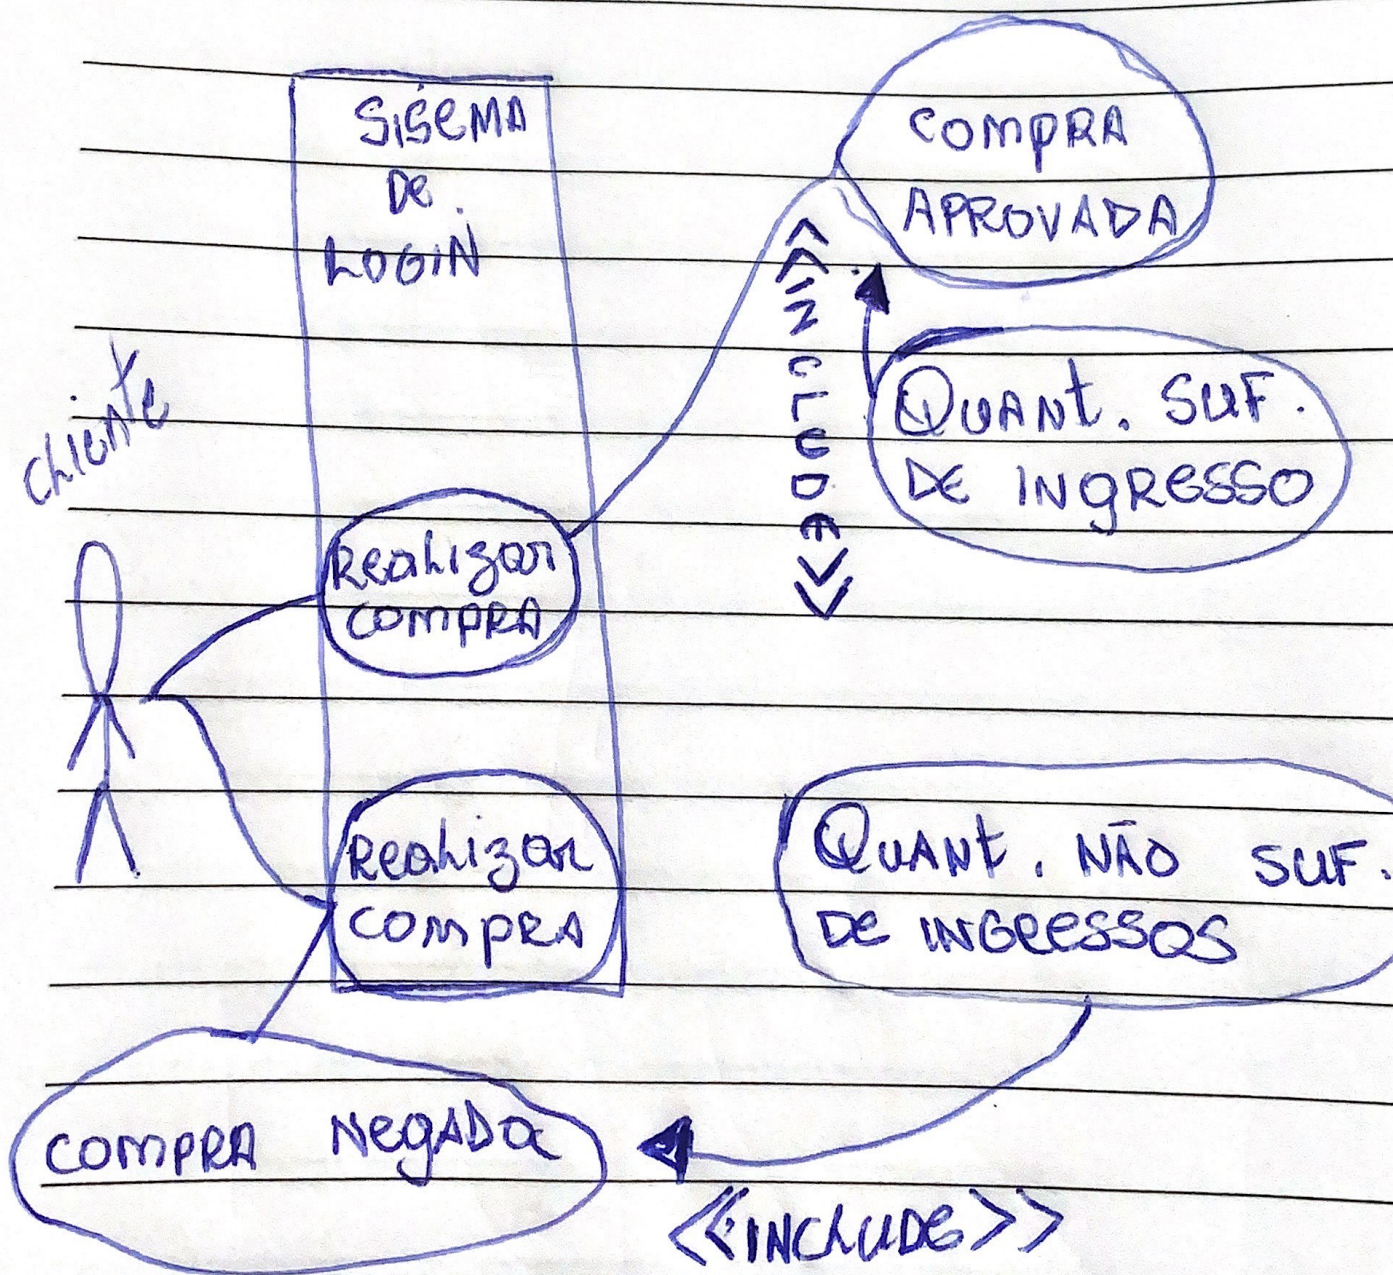 SISEMA
DE
LOGIN
COMPRA
APROVADA
<<INCLUDE>>
QUANT. SUF.
DE INGRESSO
cliente
Realizar
COMPRA
Realizar
COMPRA
QUANT. NÃO SUF.
DE INGRESSOS
COMPRA NEGADA
<<INCLUDE>>